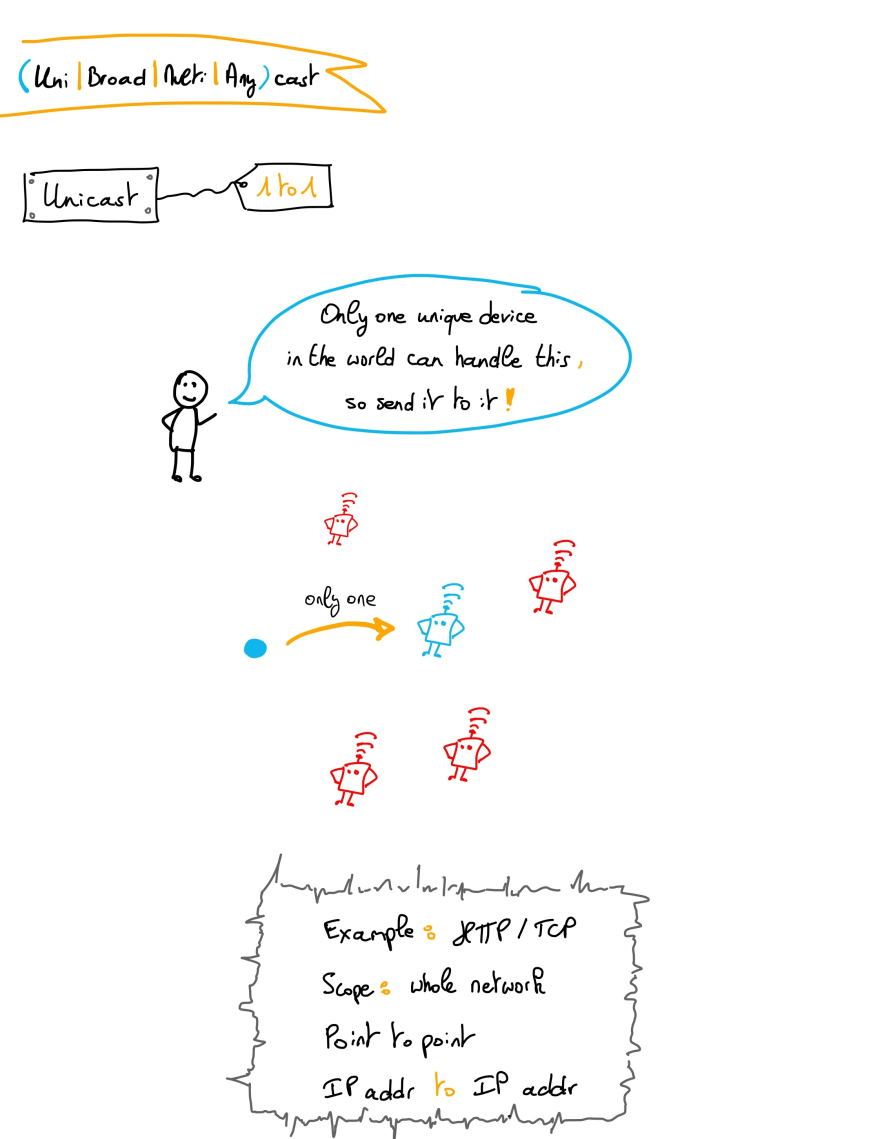 (Uni|Broad|Multi|Any)cast
Unicast
1 to 1
Only one unique device
in the world can handle this,
so send it to it!
only one
Example: HTTP / TCP
Scope: whole network
Point to point
IP addr to IP addr